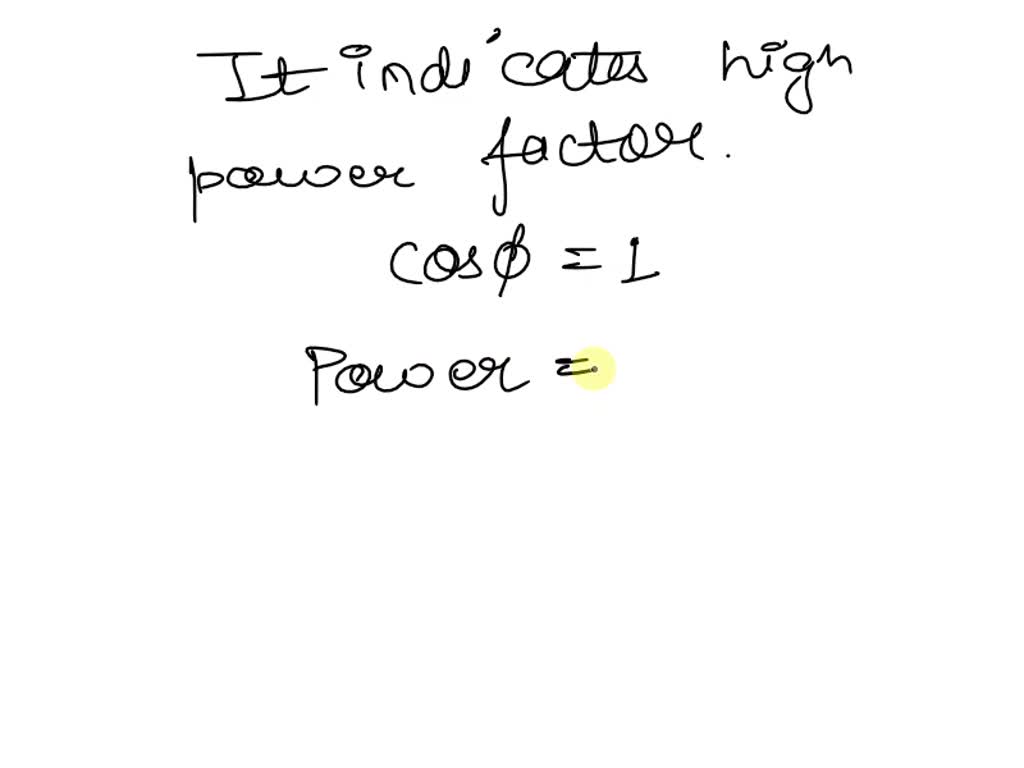 It indicates high
power factor.
cosϕ = 1
Power =